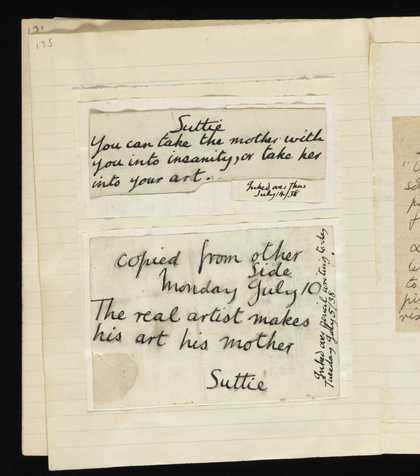 191
195
Suttie
You can take the mother with
you into insanity, or take her
into your art.
Inked over Thurs
July 14/38
copied from other
Side
Monday July 10
The real artist makes
his art his mother
Suttie
Inked over pencil writing today
Tuesday July 5/38